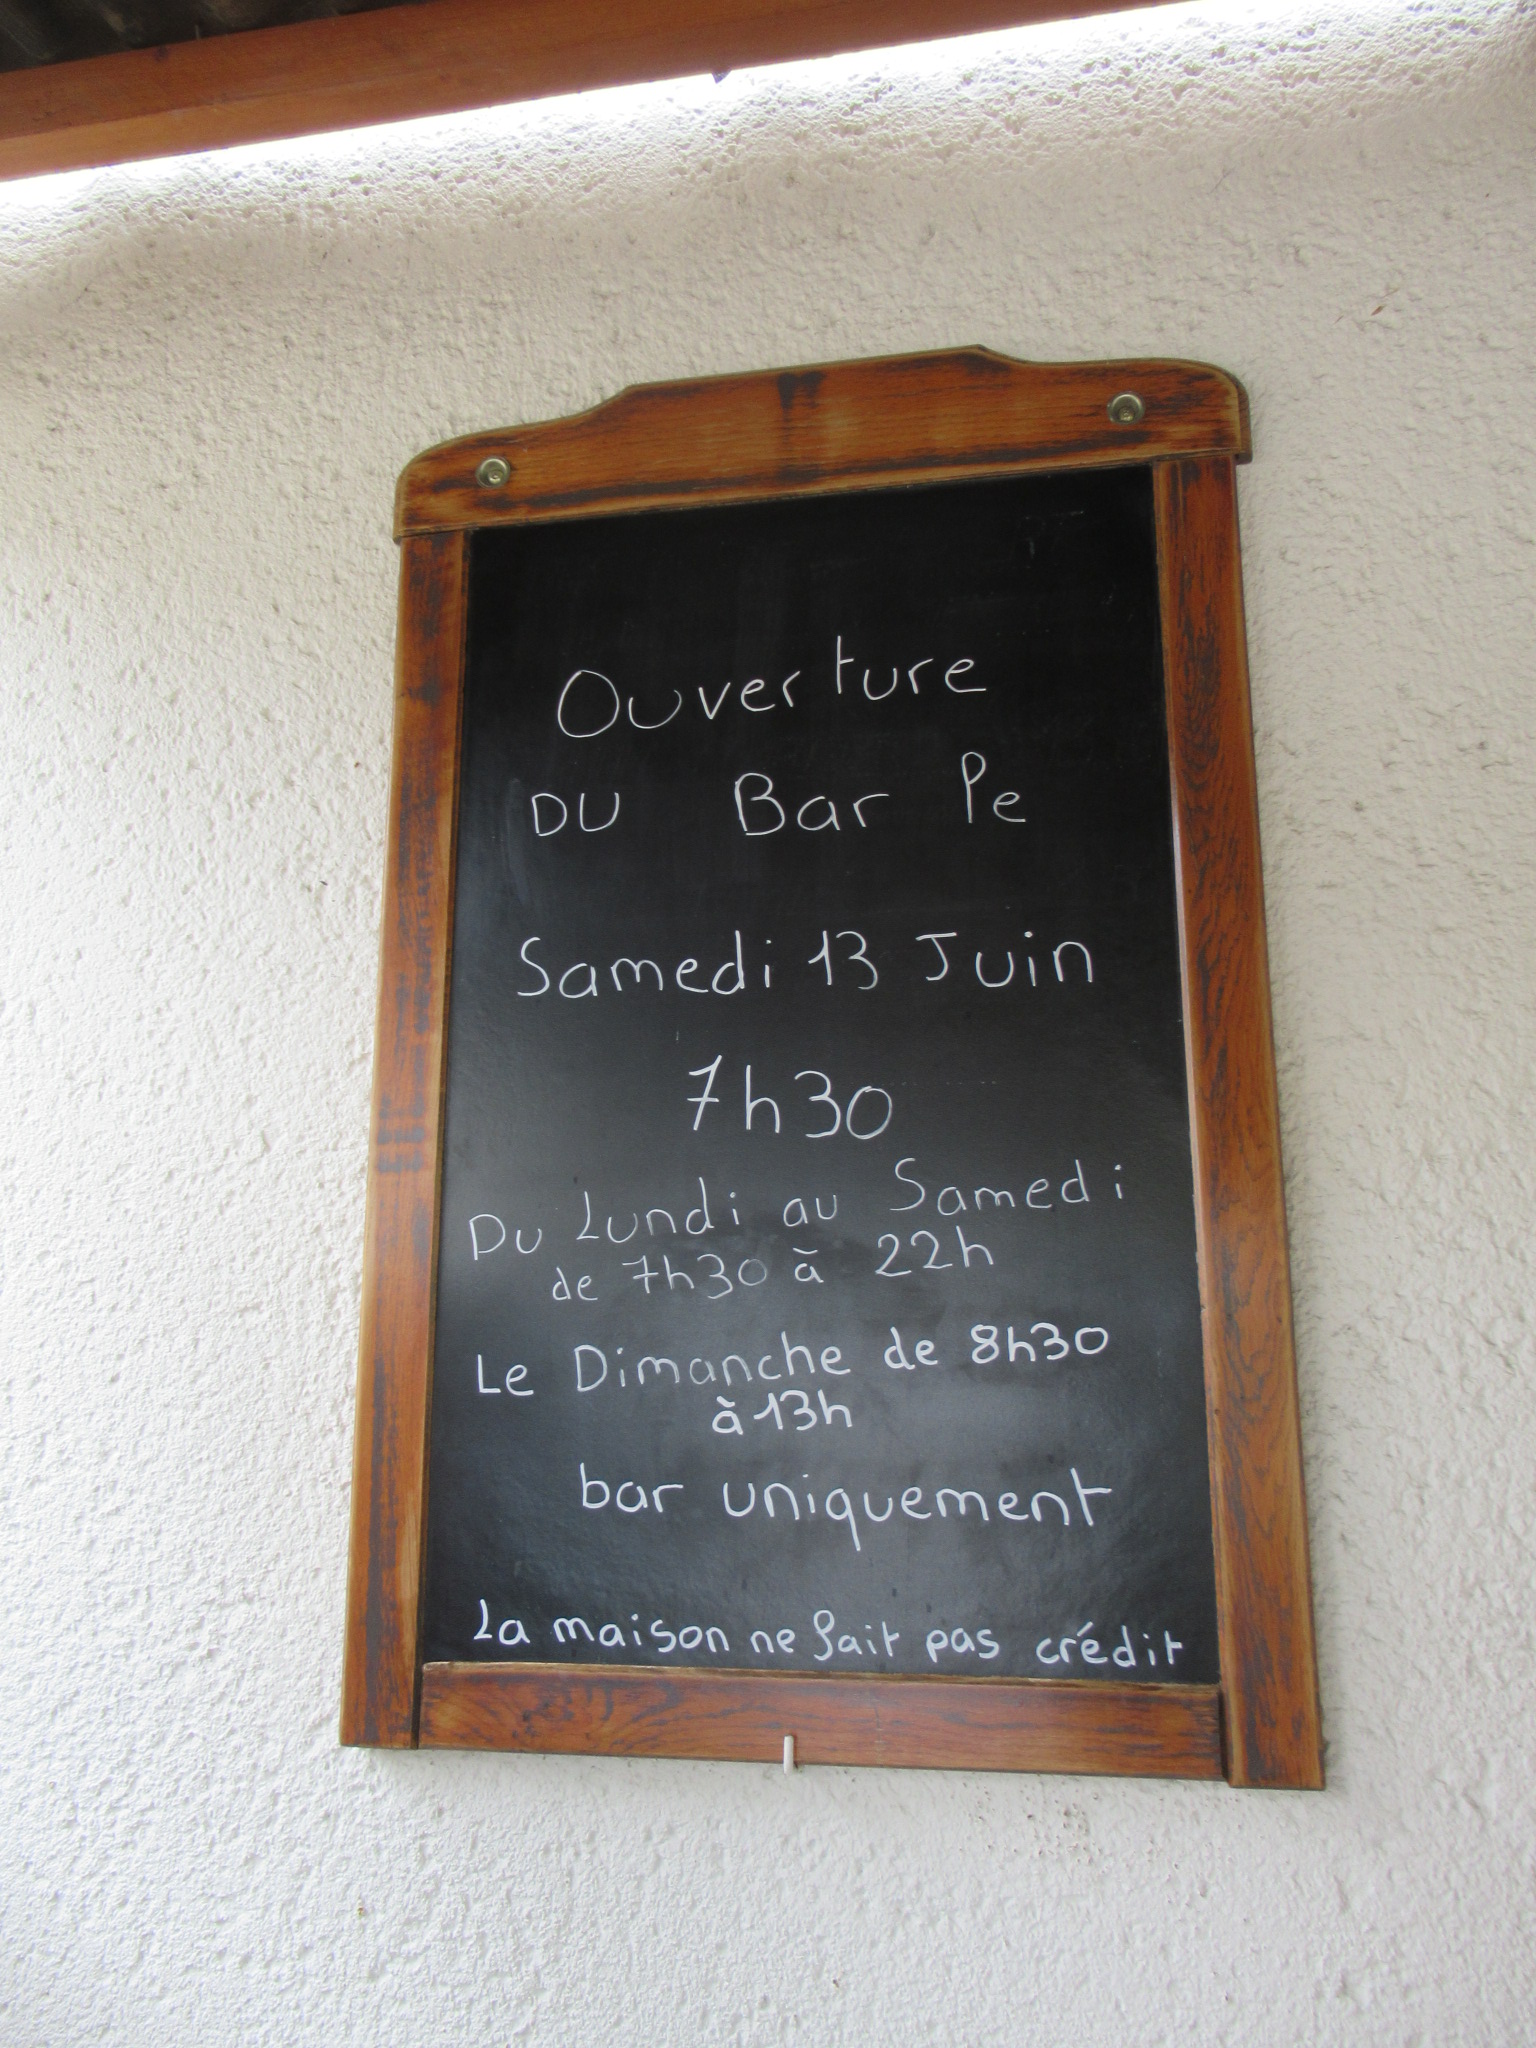 Ouverture
DU Bar le
Samedi 13 Juin
7h30
Du Lundi au Samedi
de 7h30 à 22h
Le Dimanche de 8h30
à 13h
bar uniquement
La maison ne fait pas crédit